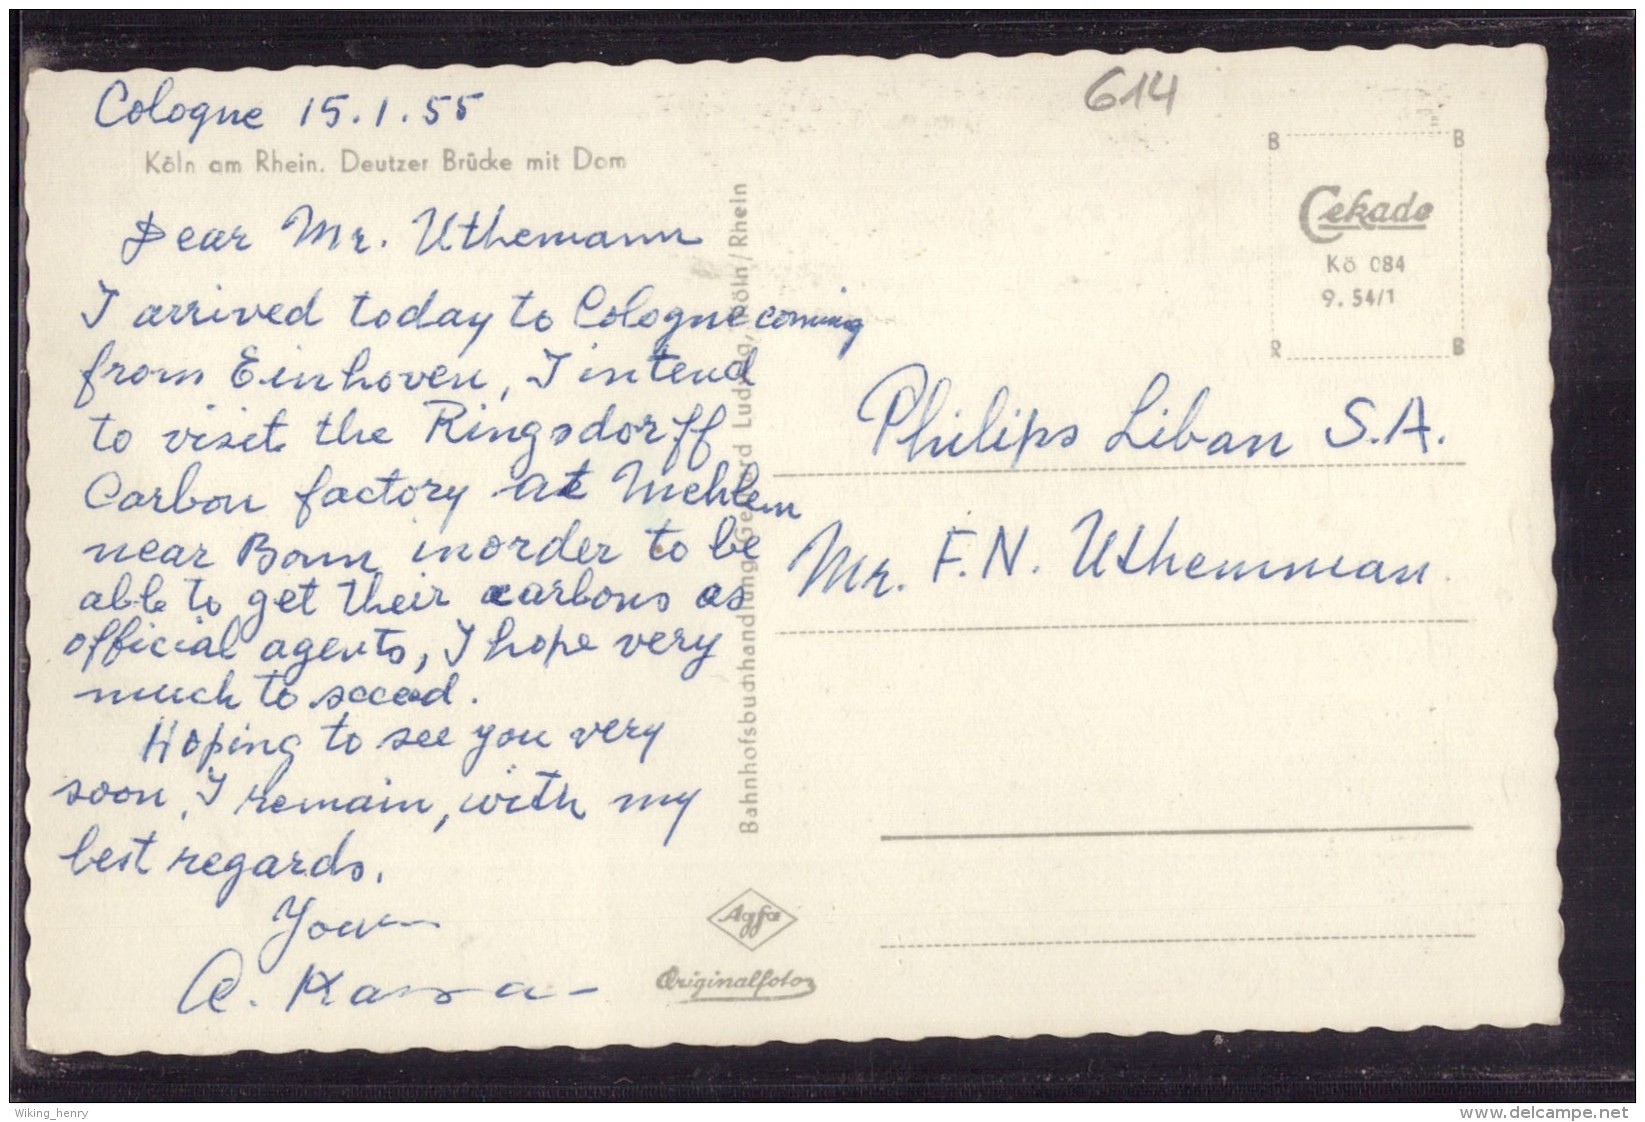 Cologne 15.1.55
Köln am Rhein. Deutzer Brücke mit Dom
Dear Mr. Uthemann
I arrived today to Cologne coming
from Einhoven, I intend
to visit the Ringsdorff
Carbon factory at Mehlem
near Bonn inorder to be
able to get their carbons as
official agents, I hope very
much to succed.
Hoping to see you very
soon, I remain, with my
best regards.
Your
A.
Bahnhofsbuchhandlung Gerhard Ludwig, Köln/Rhein
Agfa
Originalfoto
614
B B
Cekade
Kö 084
9.54/1
R B
Philips Liban S.A.
Mr. F.N. Uthemman
Wiking_henry
www.delcampe.net